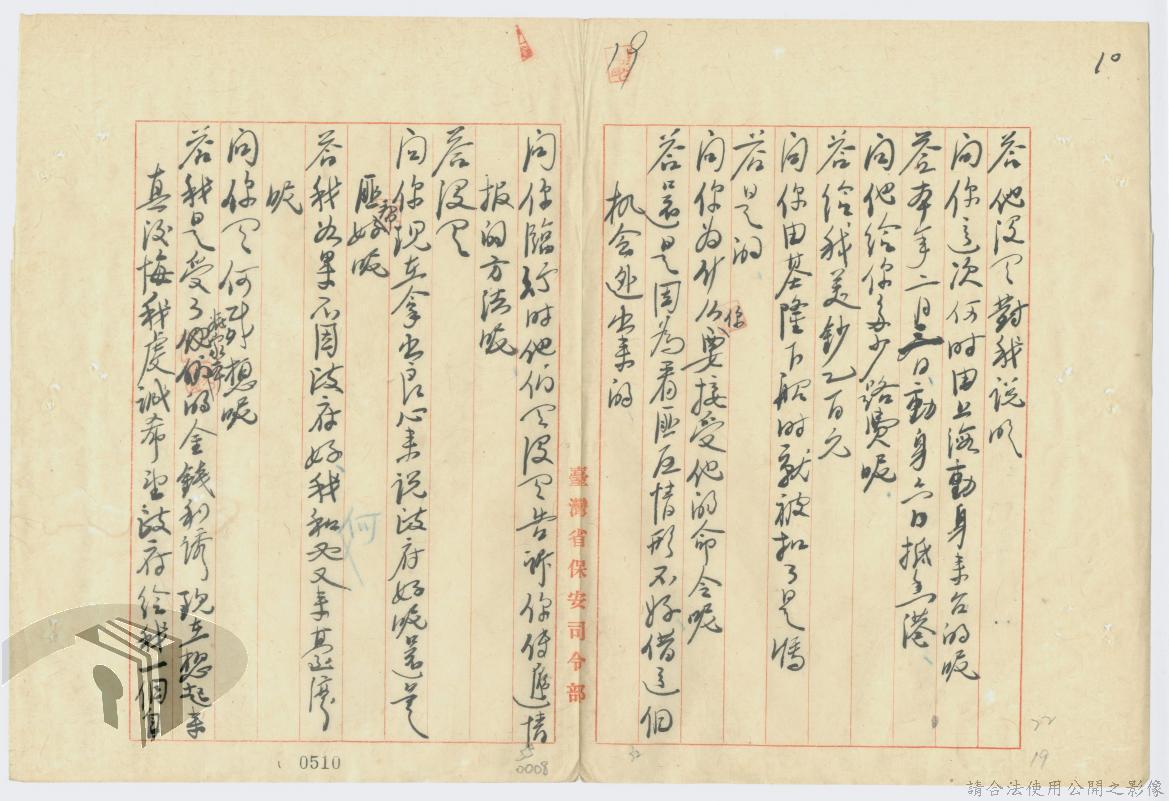 10
19
答他沒有對我說明
問你這次何時由上海動身来台的呢
答本年二月三日動身六日抵香港
問他給你多少路費呢
答給我美鈔乙百元
問你由基隆下船時就被扣了是嗎
答是的
問你為什么要接受他的命令呢
答這是因為看匪区情形不好借這個
机会逃出来的
臺灣省保安司令部
問你臨行時他们有沒有告訴你傳遞情
报的方法呢
答沒有
問你現在拿出良心来說政府好呢還是
匪好呢
答我如果不因政府好我和
呢
問你有何感想呢
答我是受了的金錢利誘現在想起来
真後悔我虔誠希望政府给我一個自
何
0510
0008
22
19
請合法使用公開之影像